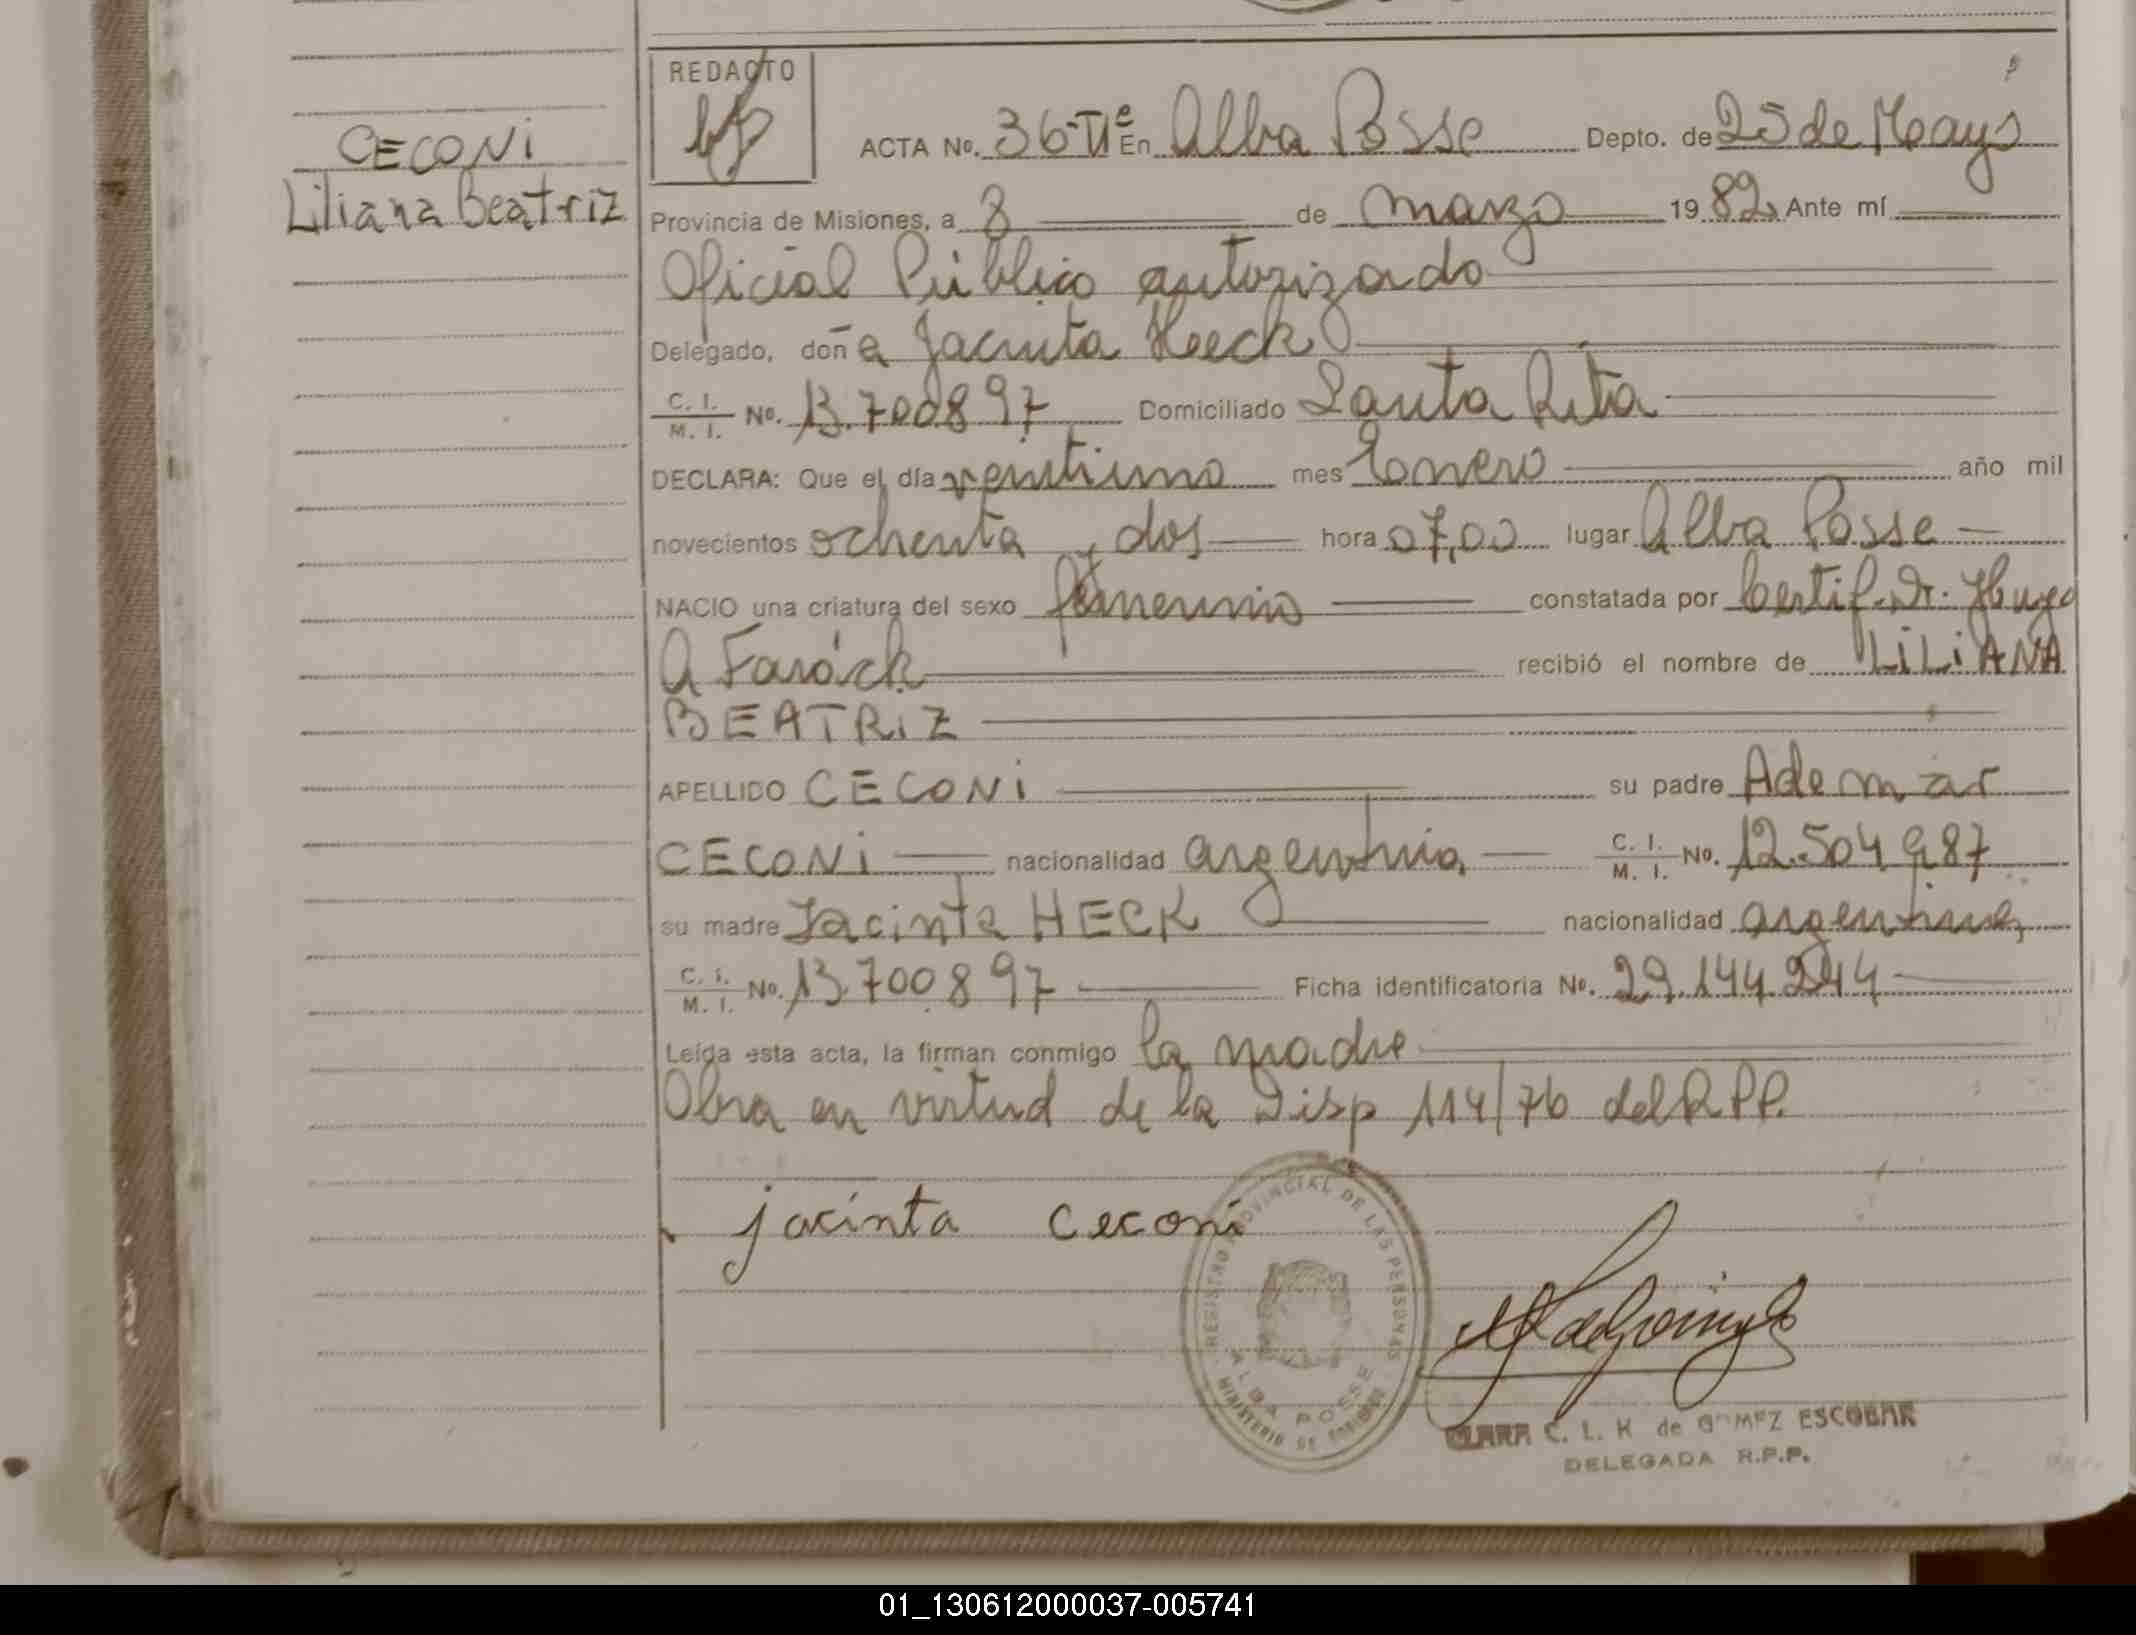 CECONi
Liliana Beatriz
REDACTO
ACTA No. 36-TIº En Alba Posse Depto. de 25 de Mayo
Provincia de Misiones, a 8 de marzo 1982 Ante mí
Oficial Público autorizado
Delegado, doña Jacinta Heck
C. I. / M. I. No. 13.700897 Domiciliado Santa Rita
DECLARA: Que el día ventiuno mes Enero año mil
novecientos ochenta y dos hora 07,00 lugar Alba Posse
NACIO una criatura del sexo femenino constatada por Certif. Dr. Hugo
A Farack recibió el nombre de LiLiANA
BEATRiZ
APELLIDO CECONi su padre Ademar
CECONi nacionalidad argentina C. I. / M. I. No. 12.504987
su madre Jacinta HECK nacionalidad argentina
C. I. / M. I. No. 13700897 Ficha identificatoria No. 29.144.244
Leída esta acta, la firman conmigo la madre
Obra en virtud de la Disp 114/76 del R P P.
jacinta ceconi
REGISTRO PROVINCIAL DE LAS PERSONAS
ALBA POSSE
MINISTERIO DE GOBIERNO
CLARA C. L. K de GOMEZ ESCOBAR
DELEGADA R.P.P.
01_130612000037-005741